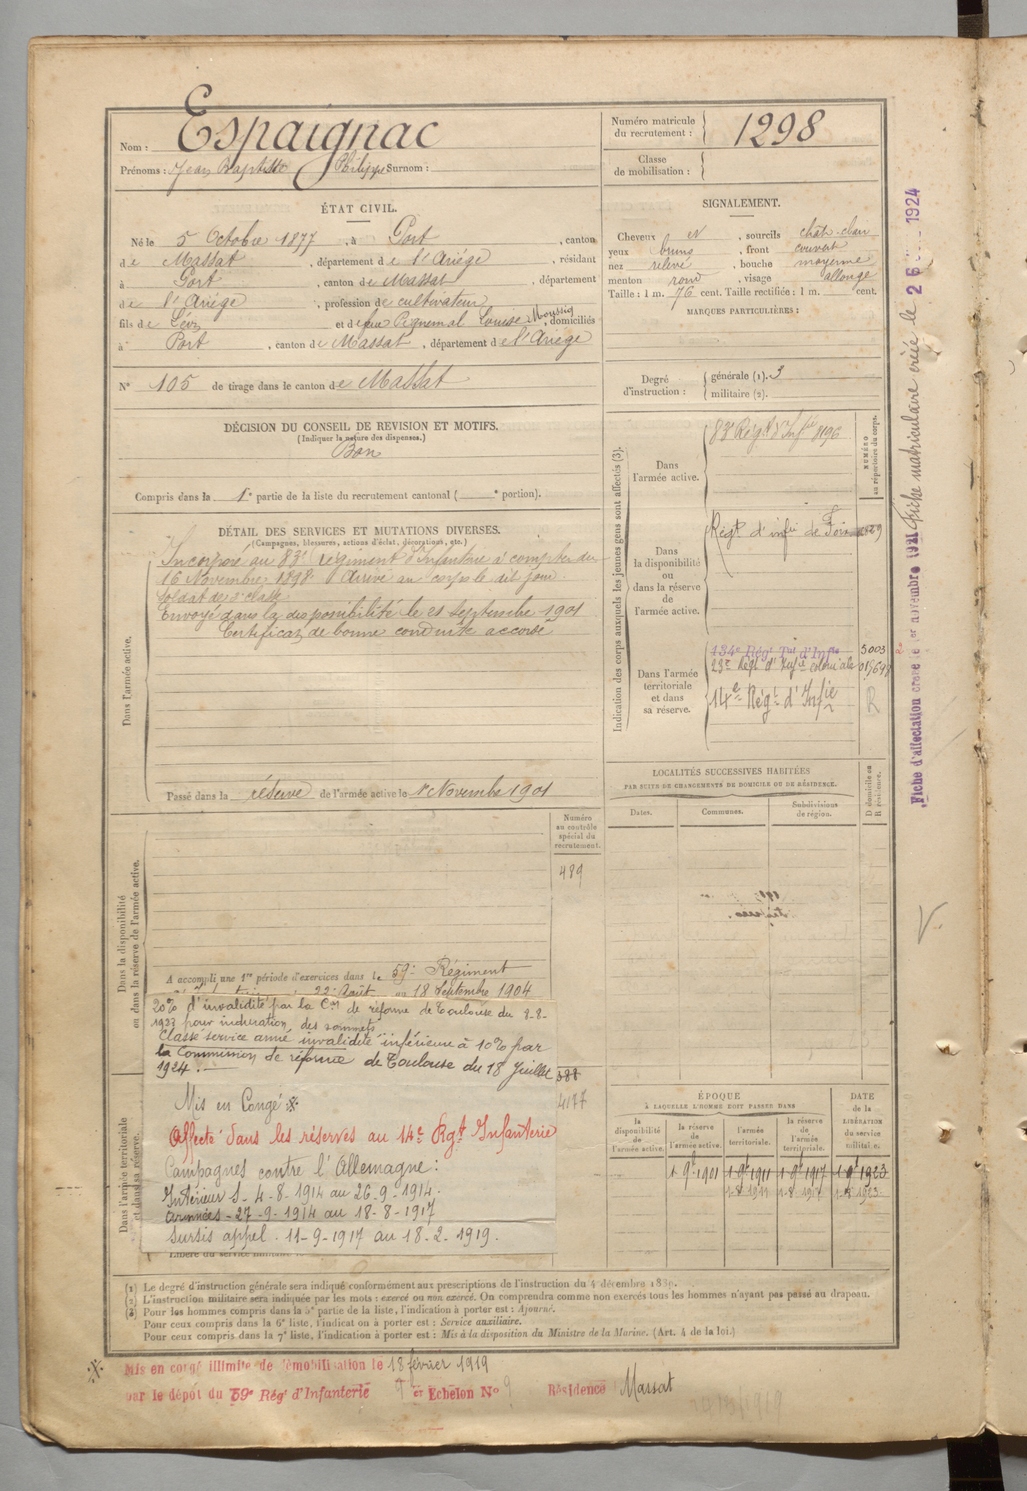 Nom : Espaignac
Prénoms : Jean Baptiste Philippe Surnom :
Numéro matricule du recrutement : 1298
Classe de mobilisation :
ÉTAT CIVIL.
Né le 5 Octobre 1877, à Port, canton
de Massat, département de l'Ariège, résidant
à Port, canton de Massat, département
de l'Ariège, profession de cultivateur
fils de et de feu Piquemal Louise, domiciliés
à Port, canton de Massat, département de l'Ariège
N° 105 de tirage dans le canton de Massat
SIGNALEMENT.
Cheveux et, sourcils chat. clair
yeux bruns, front couvert
nez relevé, bouche moyenne
menton rond, visage allongé
Taille : 1 m. 76 cent. Taille rectifiée : 1 m. cent.
MARQUES PARTICULIÈRES :
Degré d'instruction : générale (1). 3
militaire (2).
DÉCISION DU CONSEIL DE REVISION ET MOTIFS.
(Indiquer la nature des dispenses.)
Bon
Compris dans la 1e partie de la liste du recrutement cantonal ( e portion).
DÉTAIL DES SERVICES ET MUTATIONS DIVERSES.
(Campagnes, blessures, actions d'éclat, décorations, etc.)
Dans l'armée active.
Incorporé au 83e régiment d'Infanterie à compter du
16 Novembre 1898. Arrivé au corps le dit jour.
Soldat de 2e classe
Envoyé dans la disponibilité le 21 Septembre 1901
Certificat de bonne conduite accordé
Passé dans la réserve de l'armée active le 1er Novembre 1901
Indication des corps auxquels les jeunes gens sont affectés (3).
NUMÉRO au répertoire du corps.
Dans l'armée active.
83e Régt d'Infie 8196
Dans la disponibilité ou dans la réserve de l'armée active.
Régt d'infie de Foix
Dans l'armée territoriale et dans sa réserve.
134e Régt Tal d'Infie 3003
23e Régt d'Infie coloniale
14e Régt d'Infie R
LOCALITÉS SUCCESSIVES HABITÉES
PAR SUITE DE CHANGEMENTS DE DOMICILE OU DE RÉSIDENCE.
Dates. Communes. Subdivisions de région. D domicile ou R résidence.
Dans la disponibilité ou dans la réserve de l'armée active.
Numéro au contrôle spécial du recrutement.
489
A accompli une 1re période d'exercices dans le 59e Régiment
22 Août au 18 Septembre 1904
20% d'invalidité par la Con de réforme de Toulouse du 8-8-
1923 pour induration des sommets
Classé service armé invalidité inférieure à 10% par
la Commission de réforme de Toulouse du 18 Juillet
1924.
Mis en Congé
Affecté dans les réserves au 14e Rgt Infanterie
Campagnes contre l'Allemagne :
Intérieur S. 4-8-1914 au 26-9-1914.
Armées - 27-9-1914 au 18-8-1917
Sursis appel. 11-9-1917 au 18-2-1919.
Dans l'armée territoriale et dans sa réserve.
388
4177
Libéré du service militaire le
ÉPOQUE
À LAQUELLE L'HOMME DOIT PASSER DANS
la disponibilité de l'armée active. la réserve de l'armée active. l'armée territoriale. la réserve de l'armée territoriale. DATE de la LIBÉRATION du service militaire.
1 9bre 1901 1 9bre 1911 1 9bre 1917 1 9bre 1923
(1) Le degré d'instruction générale sera indiqué conformément aux prescriptions de l'instruction du 4 décembre 1889.
(2) L'instruction militaire sera indiquée par les mots : exercé ou non exercé. On comprendra comme non exercés tous les hommes n'ayant pas passé au drapeau.
(3) Pour les hommes compris dans la 5e partie de la liste, l'indication à porter est : Ajourné.
Pour ceux compris dans la 6e liste, l'indication à porter est : Service auxiliaire.
Pour ceux compris dans la 7e liste, l'indication à porter est : Mis à la disposition du Ministre de la Marine. (Art. 4 de la loi.)
Mis en congé illimité de démobilisation le 18 février 1919
par le dépôt du 59e Régt d'Infanterie 9 er Echelon No 9 Résidence Massat
Fiche d'affectation créée le 1er novembre 1921 Fiche matriculaire créée le 26 1924
V.